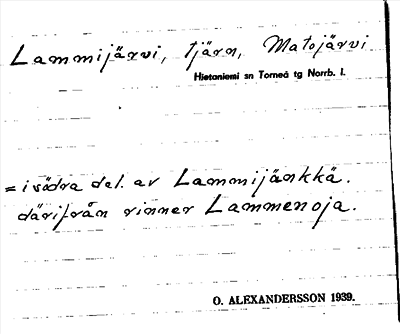 Lammijärvi, tjärn, Matojärvi
Hietaniemi sn Torneå tg Norrb. l.
= i södra del. av Lammijänkkä.
därifrån rinner Lammenoja.
O. ALEXANDERSSON 1939.